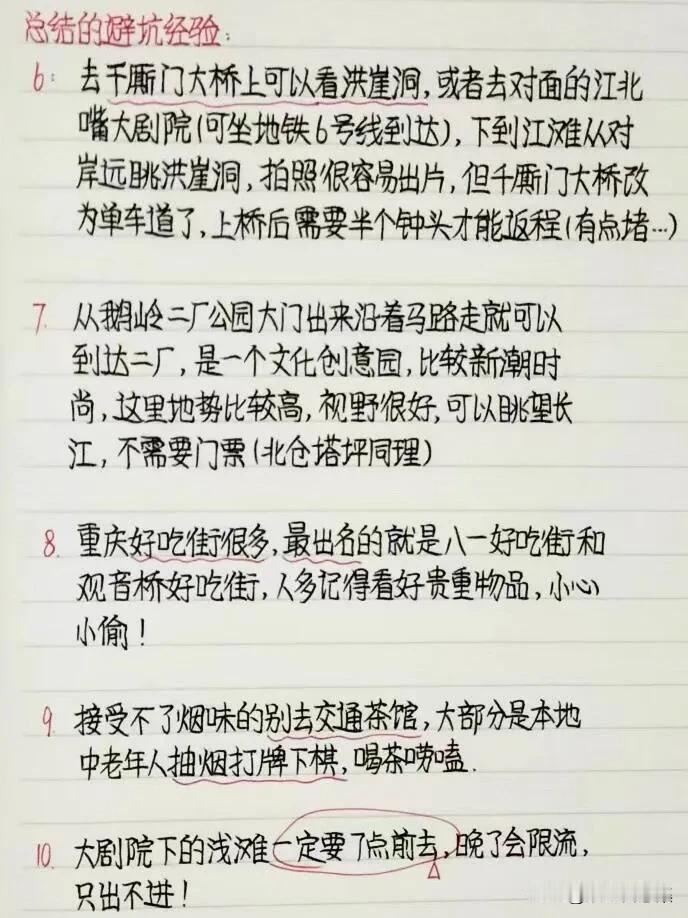 总结的避坑经验:
6: 去千厮门大桥上可以看洪崖洞,或者去对面的江北
嘴大剧院(可坐地铁6号线到达),下到江滩从对
岸远眺洪崖洞,拍照很容易出片,但千厮门大桥改
为单车道了,上桥后需要半个钟头才能返程(有点堵…)
7. 从鹅岭二厂公园大门出来沿着马路走就可以
到达二厂,是一个文化创意园,比较新潮时
尚,这里地势比较高,视野很好,可以眺望长
江,不需要门票(北仓塔坪同理)
8. 重庆好吃街很多,最出名的就是八一好吃街和
观音桥好吃街,人多记得看好贵重物品,小心
小偷!
9. 接受不了烟味的别去交通茶馆,大部分是本地
中老年人抽烟打牌下棋,喝茶唠嗑.
10. 大剧院下的浅滩一定要7点前去,晚了会限流,
只出不进!